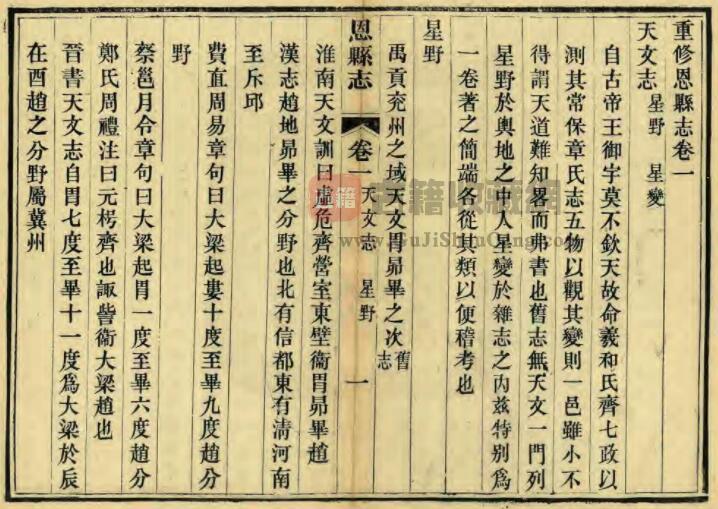 重修恩縣志卷一
天文志 星野 星變
自古帝王御宇莫不欽天故命羲和氏齊七政以
測其常保章氏志五物以觀其變則一邑雖小不
得謂天道難知畧而弗書也舊志無天文一門列
星野於輿地之中人星變於雜志之內茲特別為
一卷著之簡端各從其類以便稽考也
星野
禹貢兗州之域天文胃昴畢之次舊志
恩縣志 卷一 天文志 星野 一
淮南天文訓曰虛危齊營室東壁衞胃昴畢趙
漢志趙地昴畢之分野也北有信都東有淸河南
至斥邱
費直周易章句曰大梁起婁十度至畢九度趙分
野
蔡邕月令章句曰大梁起胃一度至畢六度趙分
鄭氏周禮注曰元枵齊也諏訾衞大梁趙也
晉書天文志自胃七度至畢十一度爲大梁於辰
在酉趙之分野屬冀州
古籍 古籍收藏網
www.GuJiShouCang.com